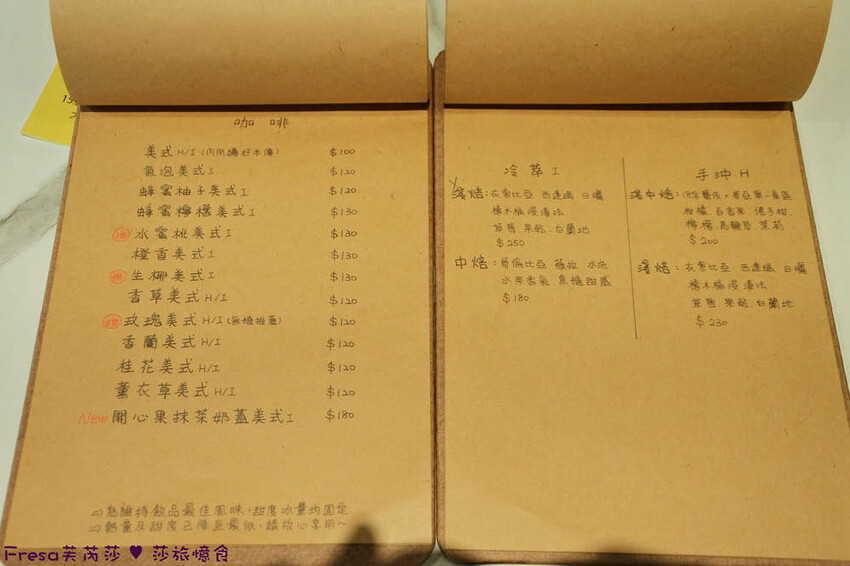 咖 啡
美式 H/I (內用續杯半價) $100
氣泡美式 I $120
蜂蜜柚子美式 I $120
蜂蜜檸檬美式 I $130
推 水蜜桃美式 I $130
橙香美式 I $130
推 生椰美式 I $130
香草美式 H/I $120
推 玫瑰美式 H/I (無糖推薦) $120
香蘭美式 H/I $120
桂花美式 H/I $120
薰衣草美式 H/I $120
New 開心果抹茶奶蓋美式 I $180
⇒為維持飲品最佳風味,甜度冰量均固定
⇒熱量及甜度已降至最低,請放心享用~
冷萃 I
淺焙:衣索比亞 西達瑪 日曬
橡木桶浸漬法
草莓.果乾.白蘭地
$250
中焙:哥倫比亞 薇拉 水洗
水果香氣.焦糖甜感
$180
手沖 H
淺中焙:
柑橘.百香果.佛手柑
檸檬.烏龍茶.茉莉
$200
淺焙:衣索比亞 西達瑪 日曬
橡木桶浸漬法
草莓.果乾.白蘭地
$230
Fresa芙芮莎 ♥ 莎旅憶食